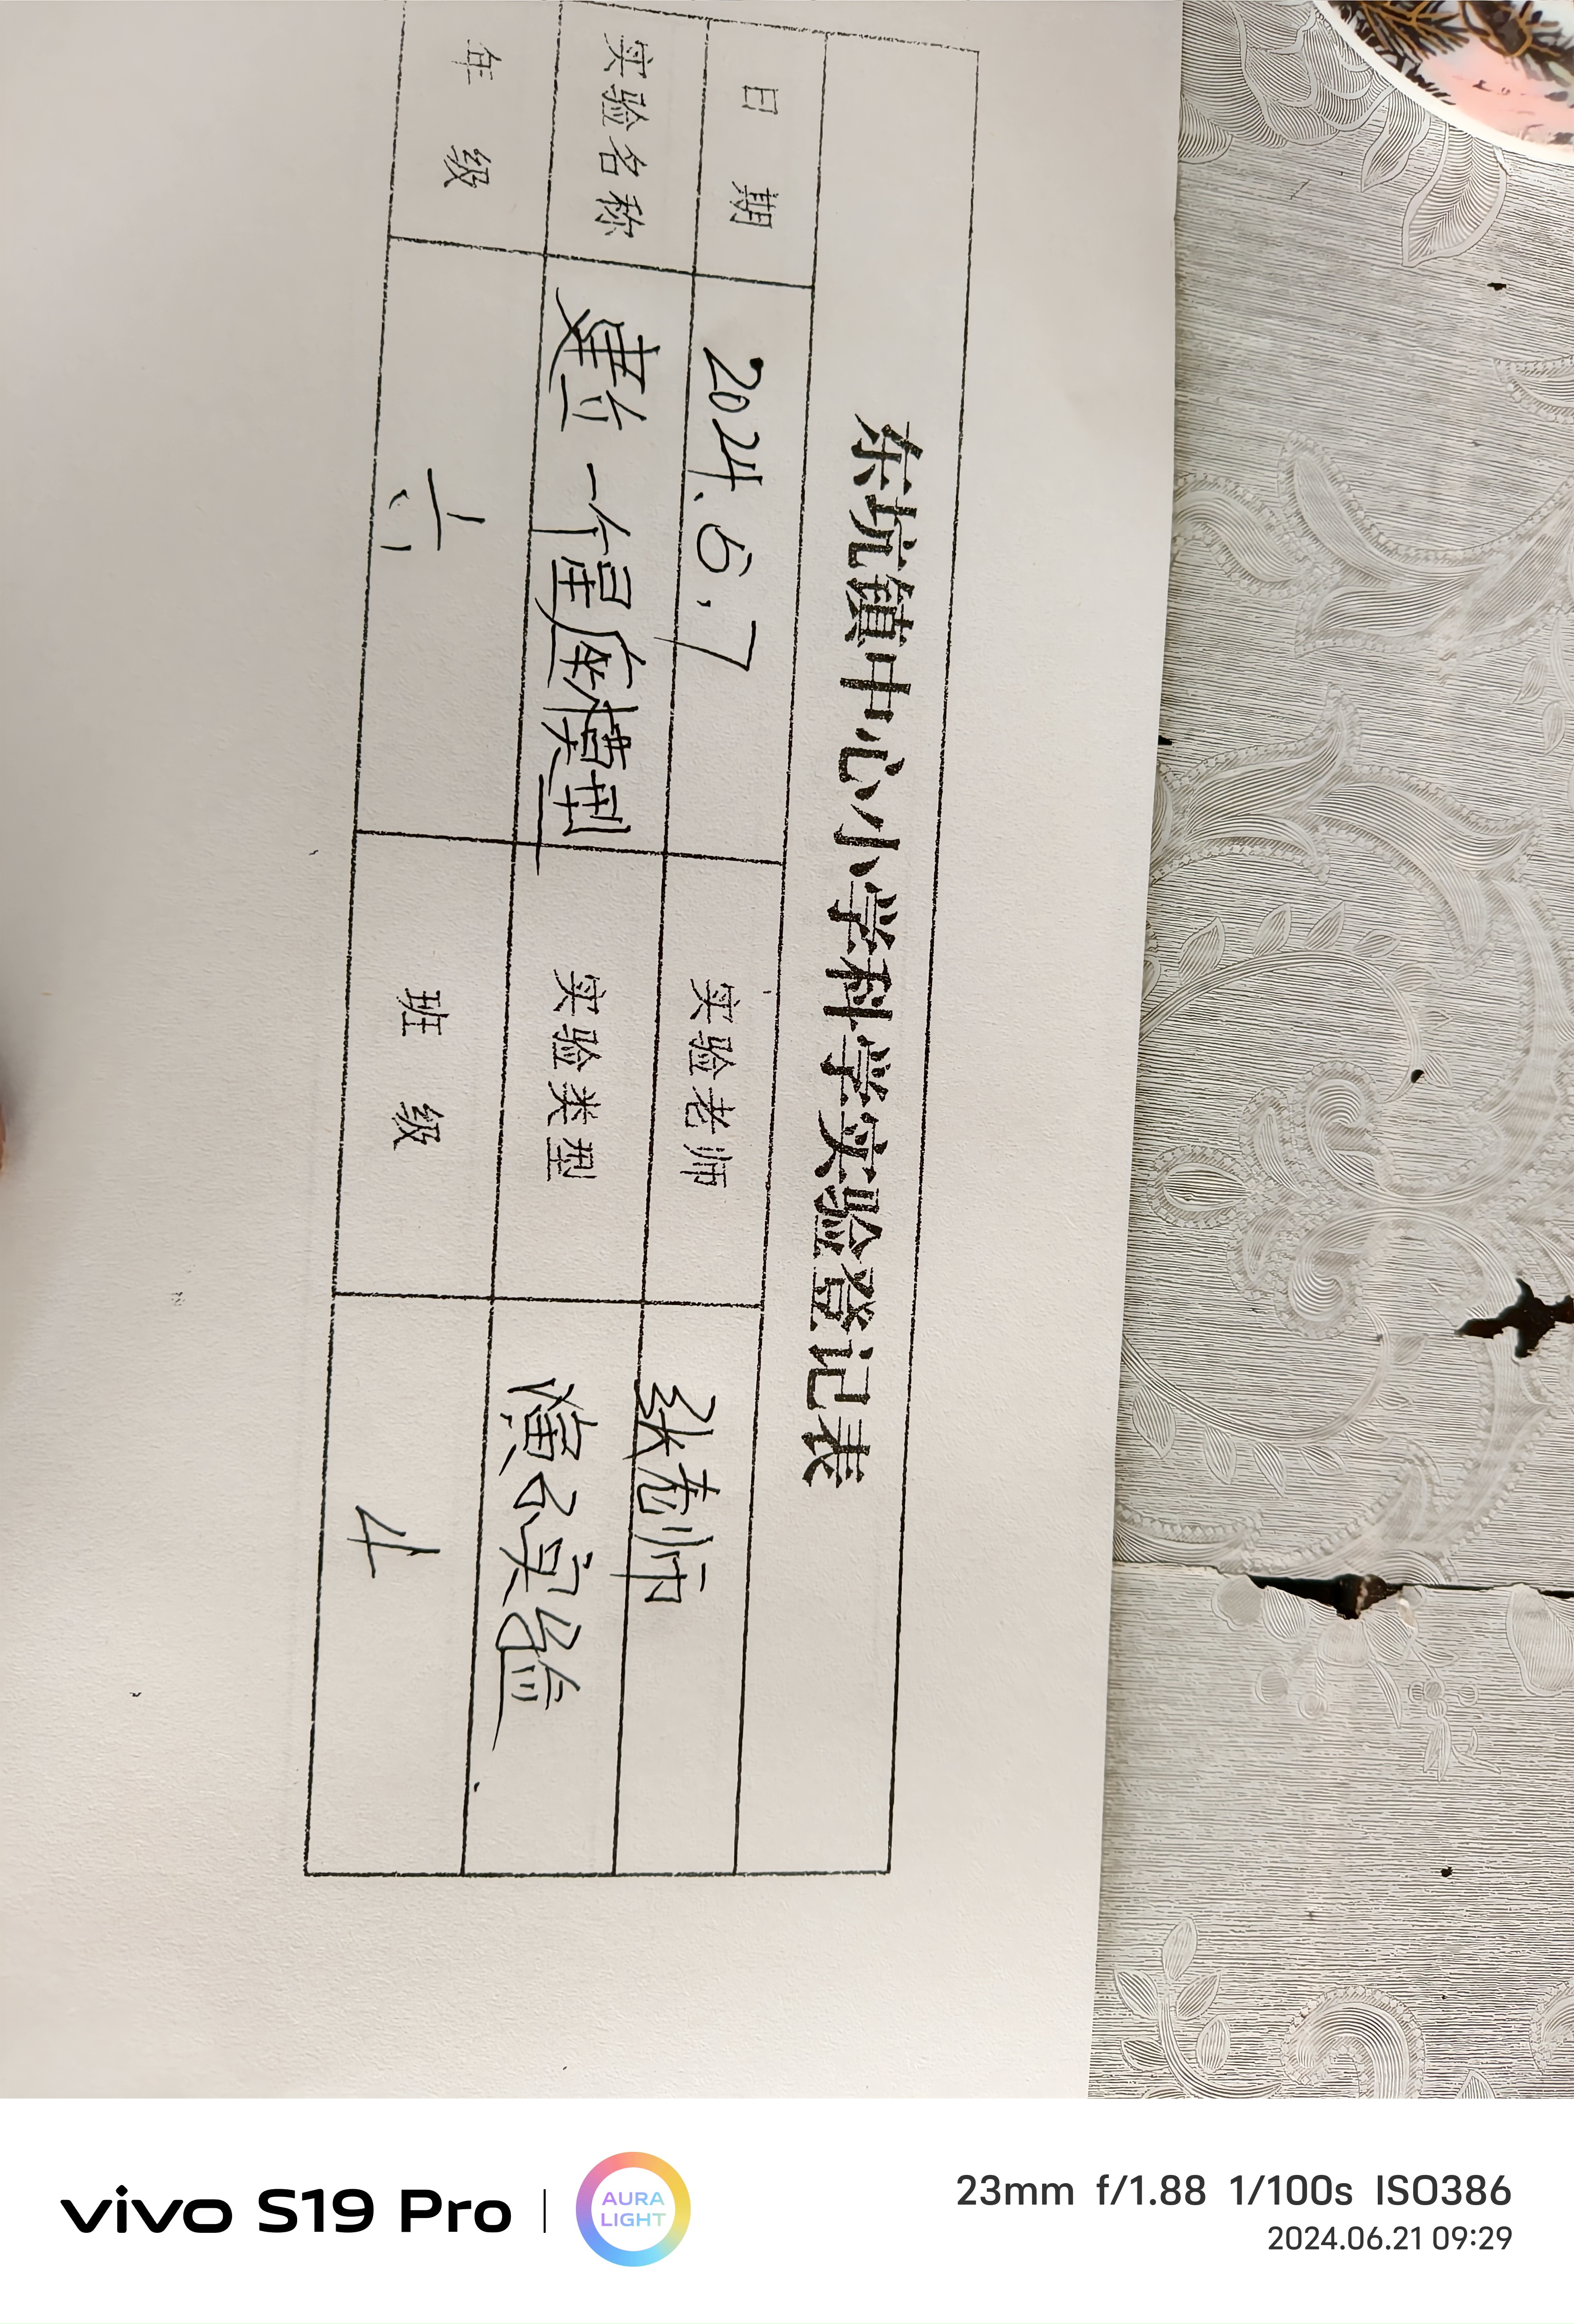 东坑镇中心小学科学实验登记表
日 期 2024.6.7 实验老师 张老师
实验名称 建立一个星座模型 实验类型 演示实验
年 级 六 班 级 4
vivo S19 Pro AURA LIGHT 23mm f/1.88 1/100s ISO386
2024.06.21 09:29